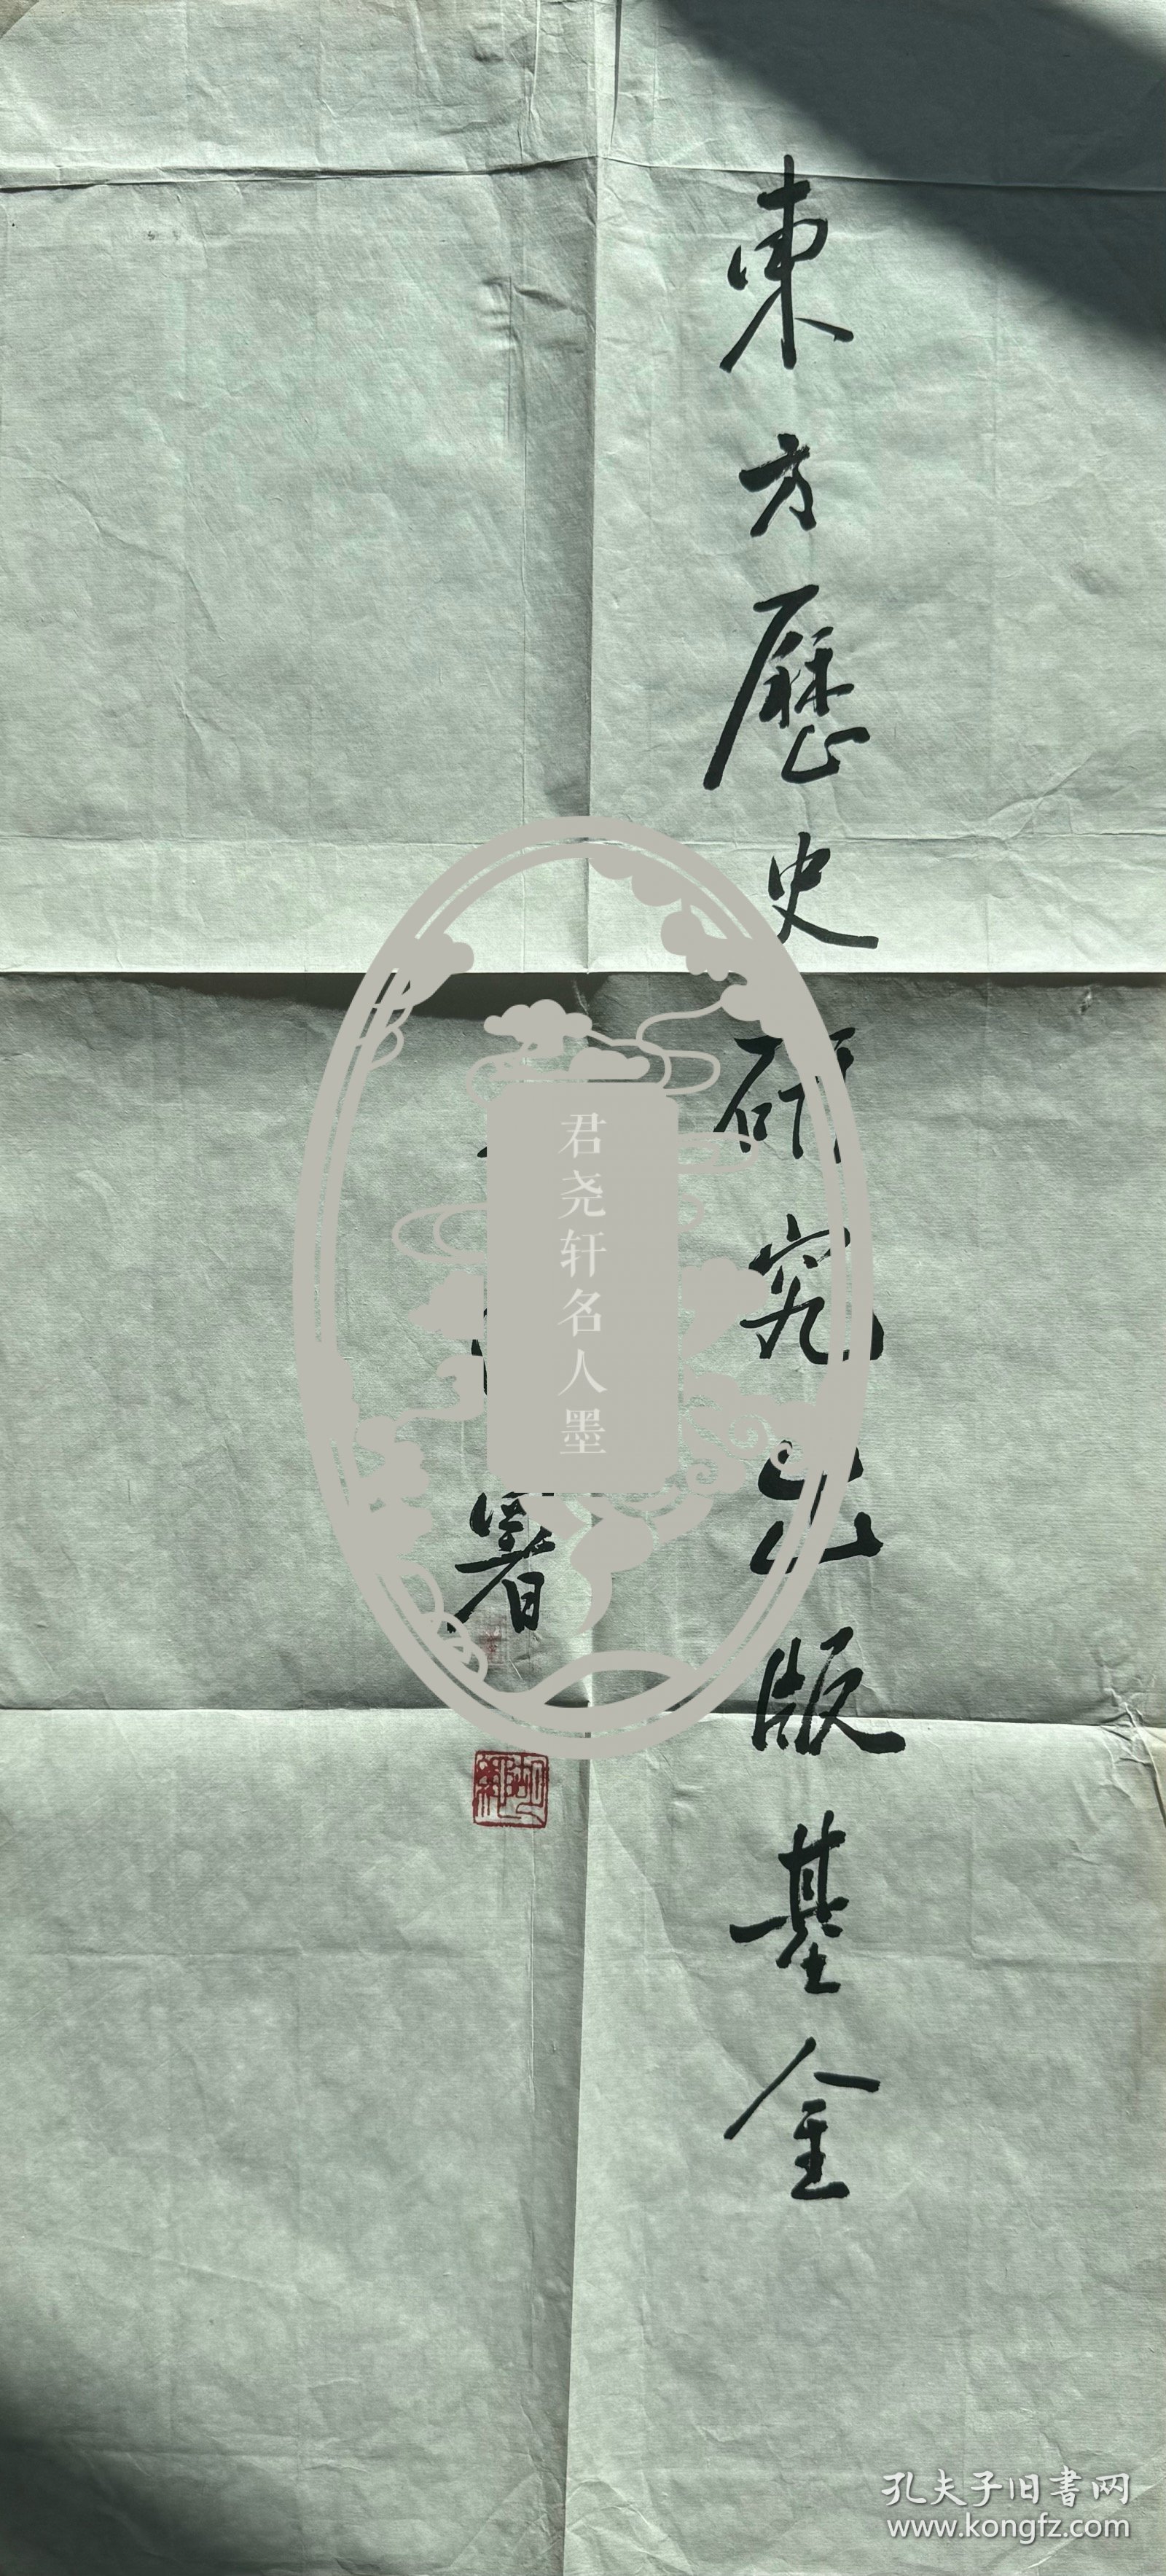 東方歷史研究出版基金
署
君尧轩名人墨
孔夫子旧書网
www.kongfz.com